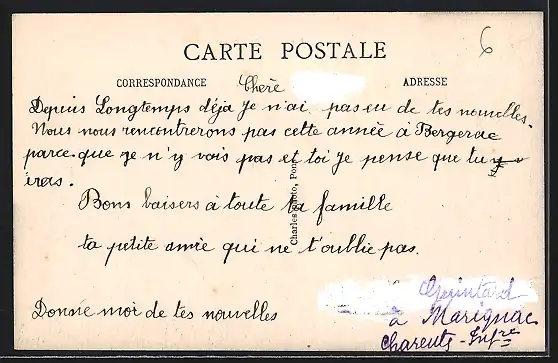 6
CARTE POSTALE
CORRESPONDANCE
Chère
ADRESSE
Depuis Longtemps déja je n'ai pas eu de tes nouvelles.
Nous nous rencontrerons pas cette année à Bergerac
parce que je n'y vais pas et toi je pense que tu y
iras.
Bons baisers à toute ta famille
ta petite amie qui ne t'oublie pas.
Donne moi de tes nouvelles
à Marignac
Charente-Infre
Charles Photo, Pons